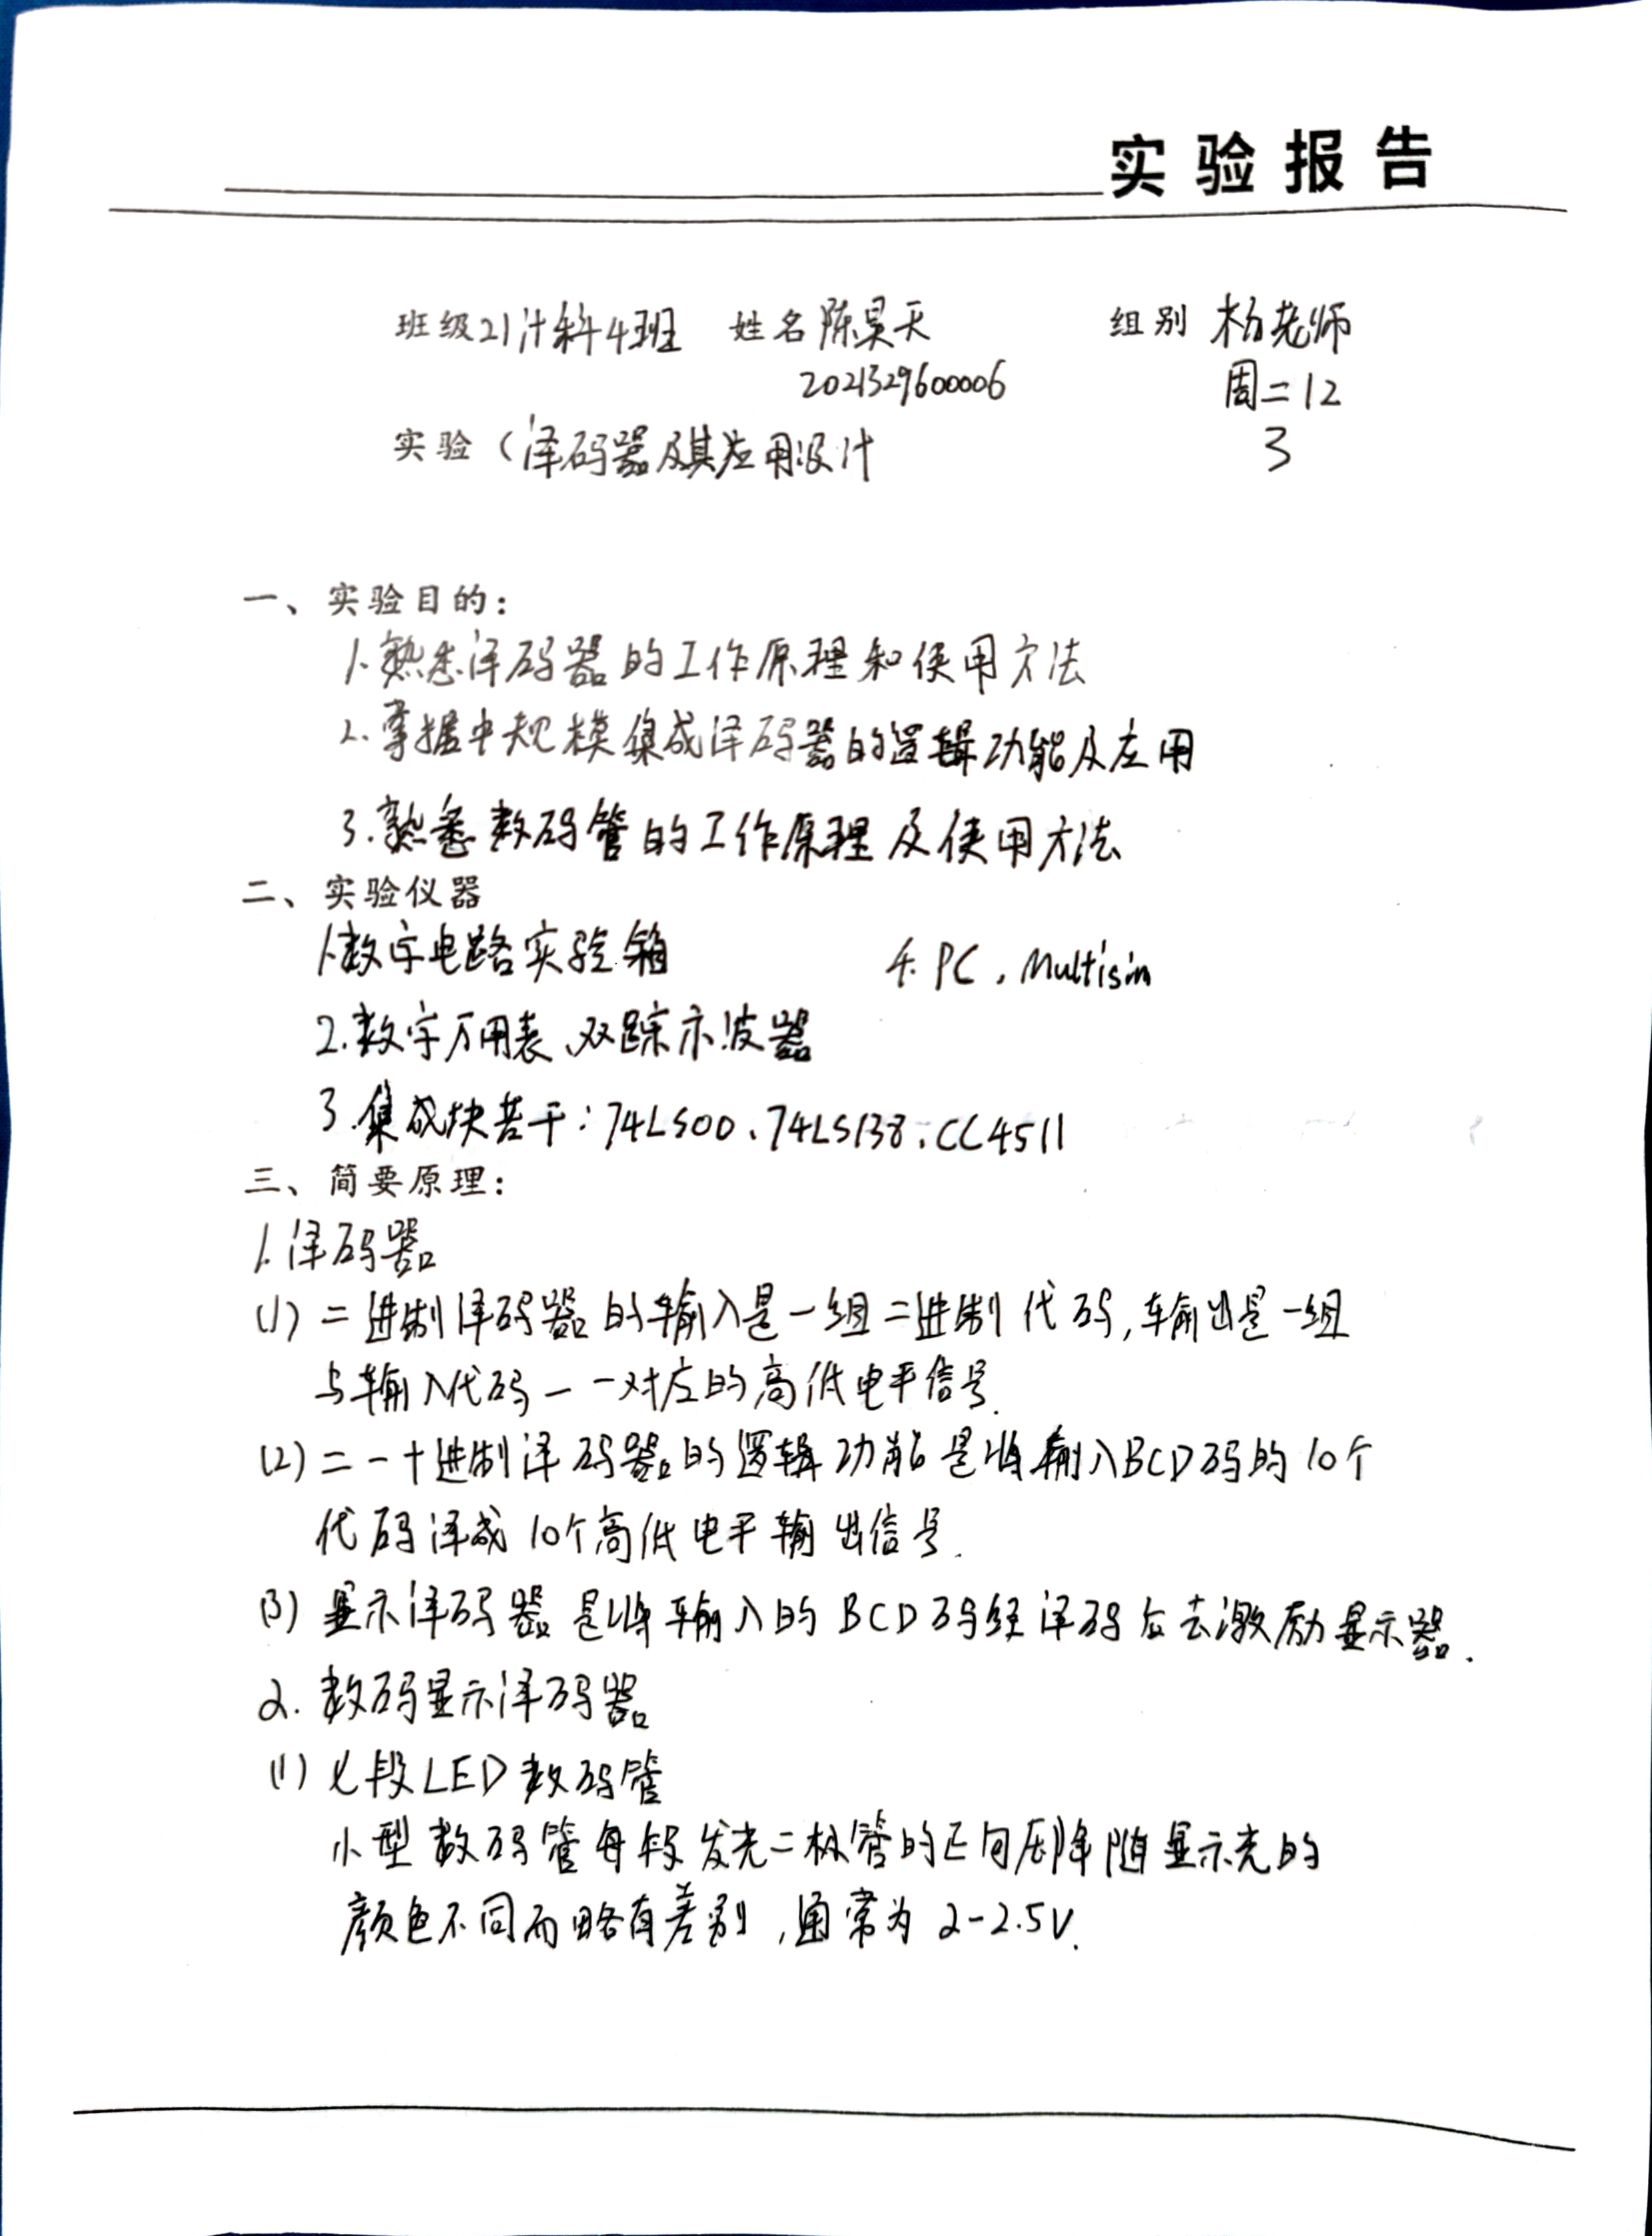 实验报告
班级21计科4班 姓名陈昊天 组别 杨老师
2021329600006 周二12
实验(译码器及其应用设计 3
一、实验目的:
1.熟悉译码器的工作原理和使用方法
2.掌握中规模集成译码器的逻辑功能及应用
3.熟悉数码管的工作原理及使用方法
二、实验仪器
1.数字电路实验箱 4.PC,Multisim
2.数字万用表、双踪示波器
3.集成块若干:74LS00、74LS138、CC4511
三、简要原理:
1.译码器
(1)二进制译码器的输入是一组二进制代码,输出是一组
与输入代码一一对应的高低电平信号.
(2)二一十进制译码器的逻辑功能是将输入BCD码的10个
代码译成10个高低电平输出信号.
(3)显示译码器是将输入的BCD码经译码后去激励显示器.
2.数码显示译码器
(1)七段LED数码管
小型数码管每段发光二极管的正向压降随显示光的
颜色不同而略有差别,通常为2-2.5V.